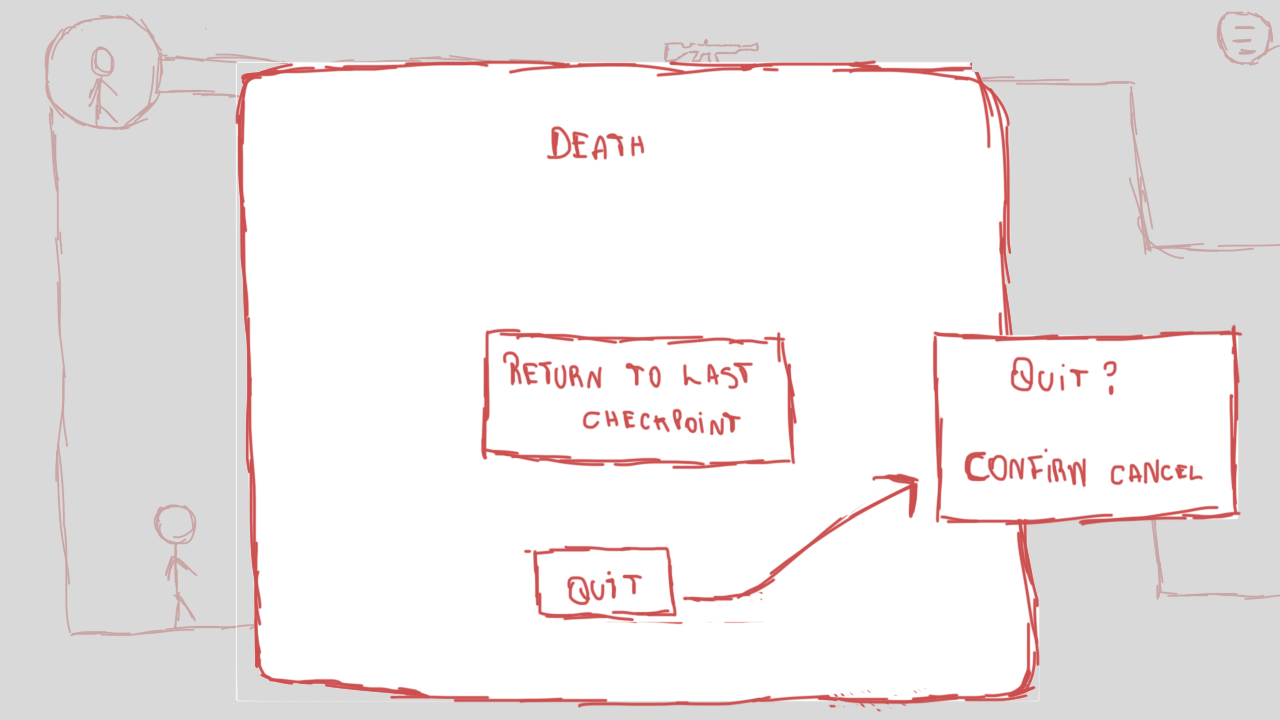 DEATH
RETURN TO LAST
CHECKPOINT
QUIT?
CONFIRM CANCEL
QUIT